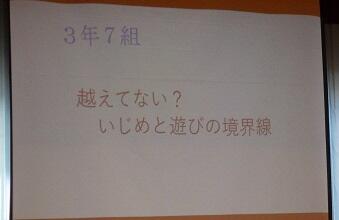 ３年７組
越えてない？
いじめと遊びの境界線